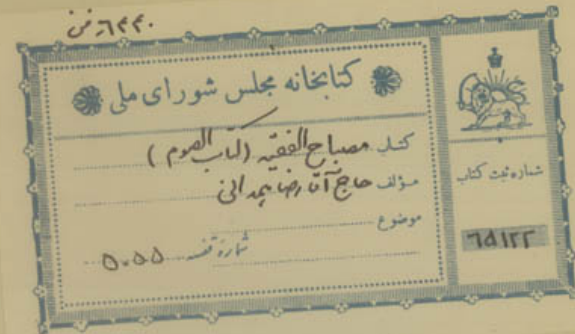 ۶۴۴۰-فن
کتابخانه مجلس شورای ملی
کتاب مصباح الفقیه (کتاب الصوم)
مؤلف حاج آقا رضا همدانی
موضوع
شماره قفسه ۵۰۵۵
شماره ثبت کتاب
۶۵۱۲۲